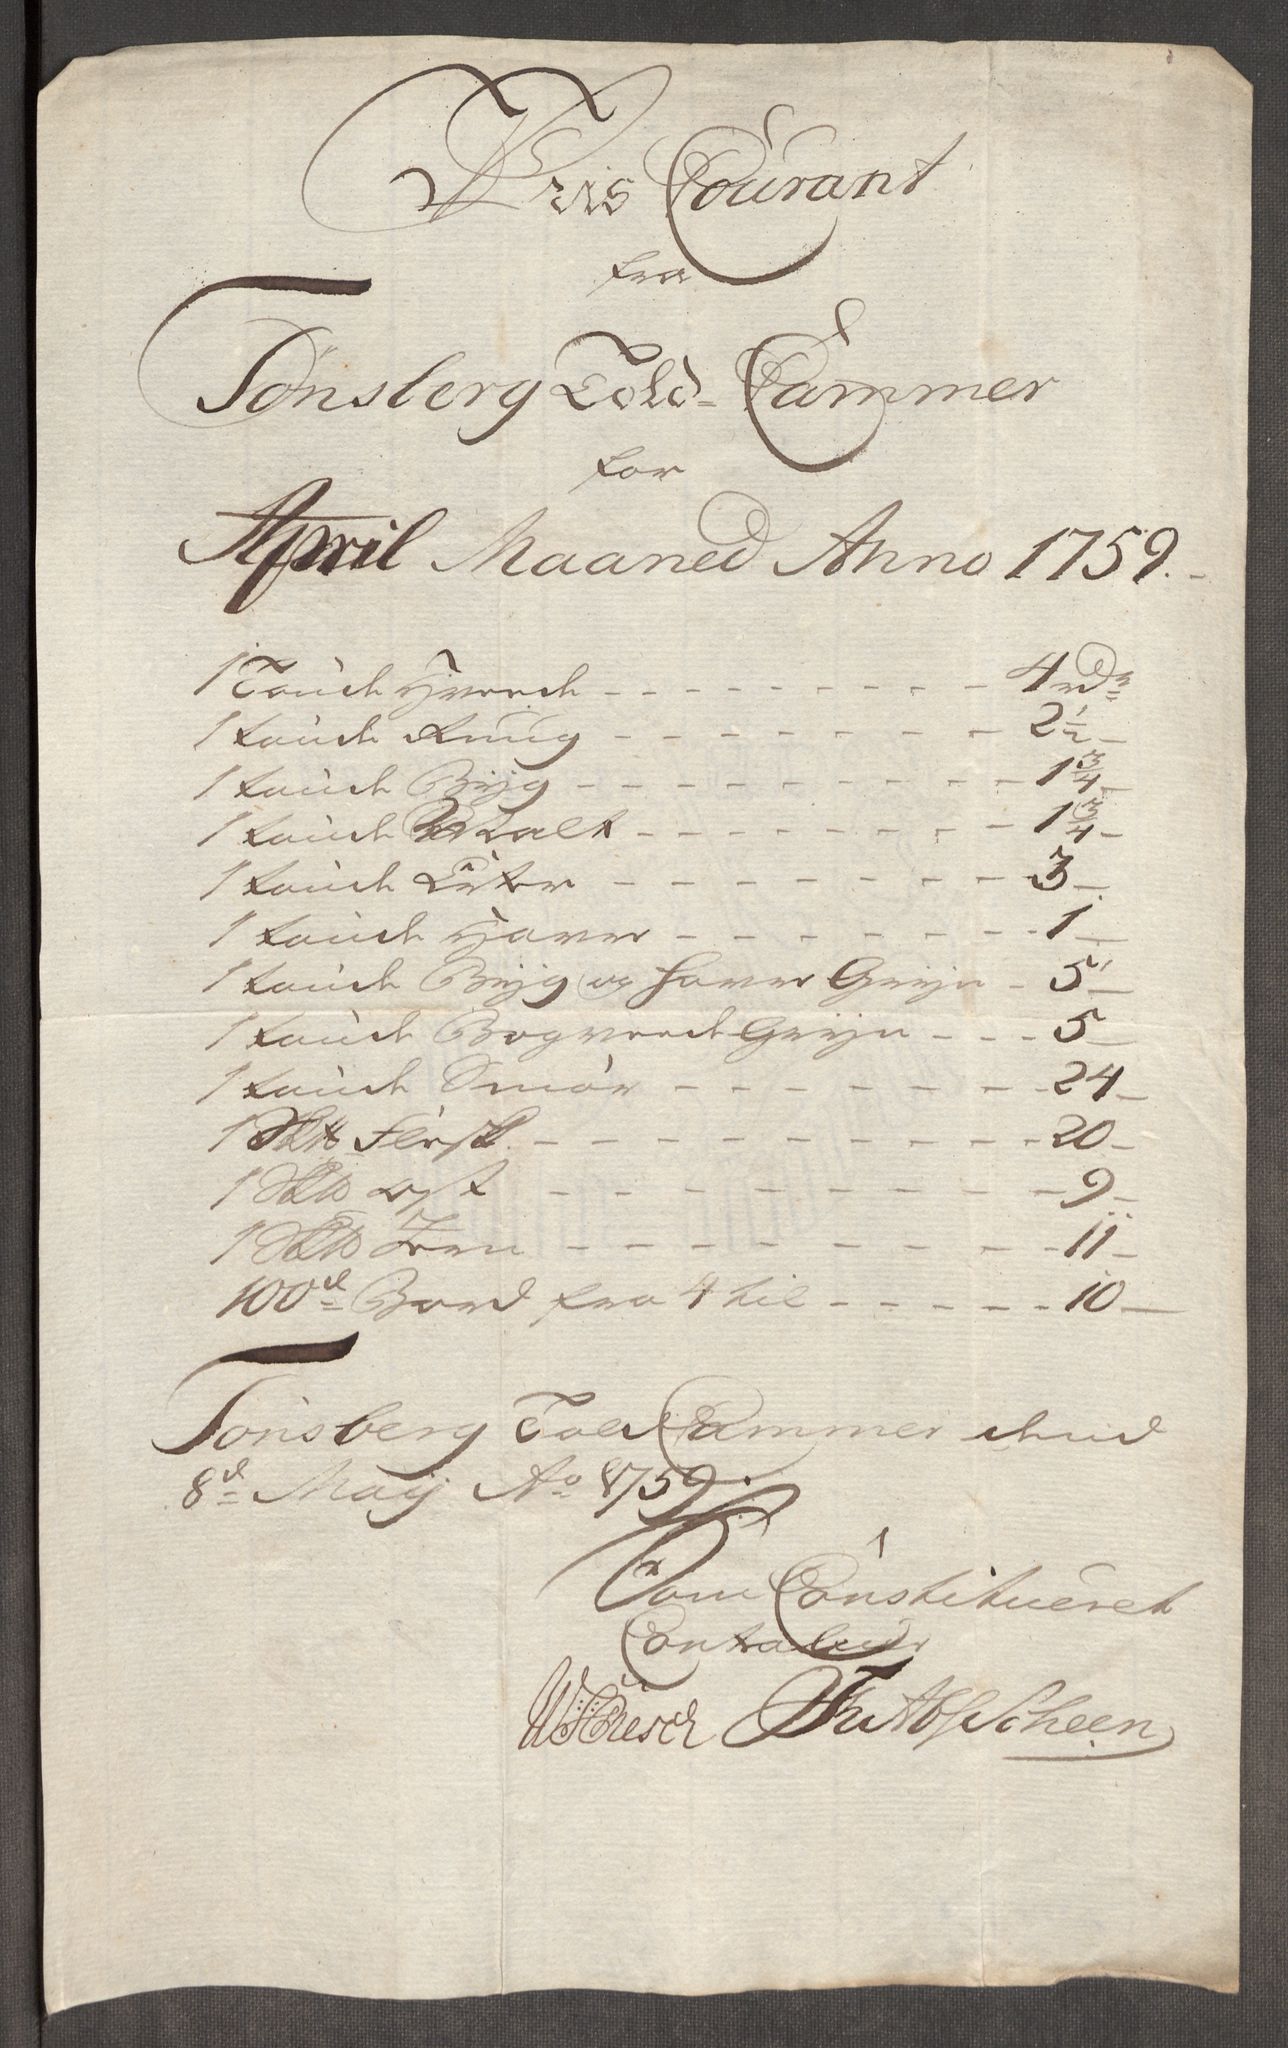 Pris Courant
fra
Tönsberg Told-Cammer
for
April Maaned Anno 1759.
1 Tönde Hvede - - - 4 rdr
1 tönde Rug - - - 2½ -
1 tönde Byg - - - 1¾ -
1 tönde Malt - - - 1¾ -
1 tönde Erter - - - 3 -
1 tönde Haver - - - 1 -
1 tönde Byg og Haver Gryn - 5 -
1 tönde Bogvede Gryn - - - 5 -
1 tönde Smör - - - 24 -
1 Sk℔ Flesk - - - 20 -
1 Sk℔ Ost - - - 9 -
1 Sk℔ - - - 11 -
100d Bord fra 4 til - - - 10 -
Tönsberg Told Cammer dend
8d Maij Ao 1759.
Som Constitueret
Contraleur
Scheen